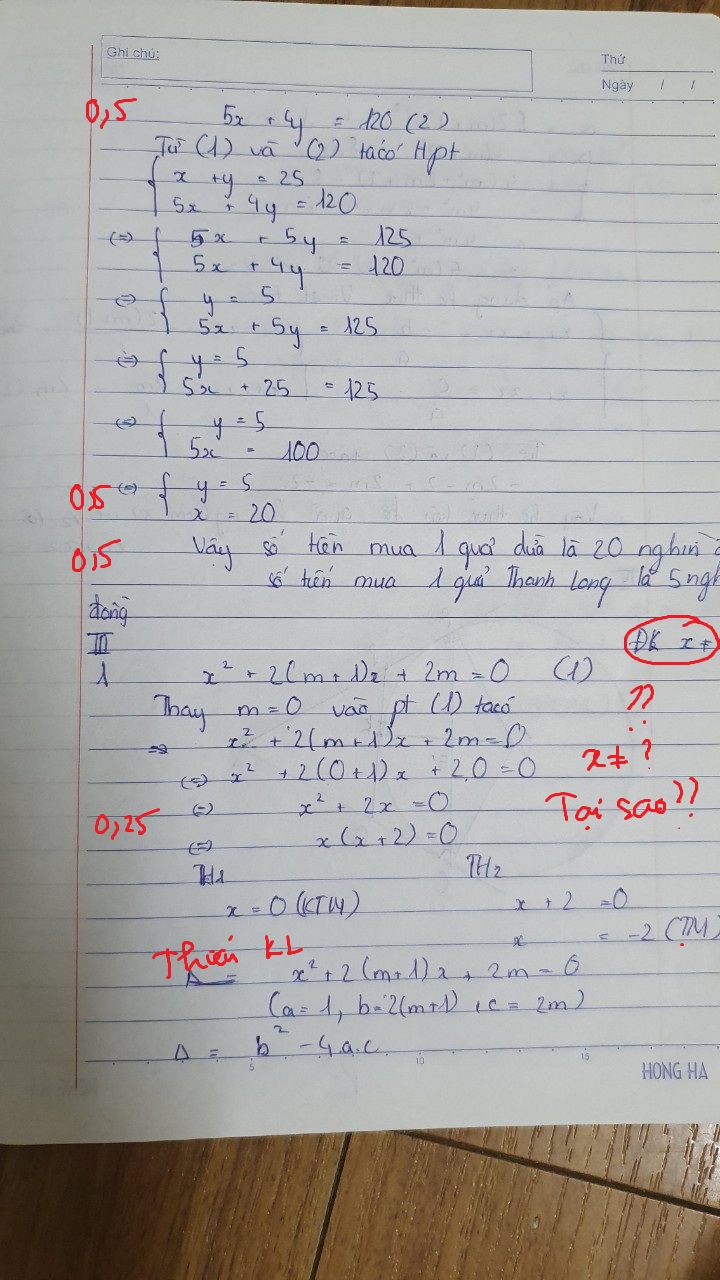 Ghi chú:
Thứ
Ngày / /
0,5
5x + 4y = 120 (2)
Từ (1) và (2) ta có Hpt
{ x + y = 25
5x + 4y = 120
(=) { 5x + 5y = 125
5x + 4y = 120
(=) { y = 5
5x + 5y = 125
(=) { y = 5
5x + 25 = 125
(=) { y = 5
5x = 100
0,5 (=) { y = 5
x = 20
0,5 Vậy số tiền mua 1 quả dừa là 20 nghìn
số tiền mua 1 quả Thanh Long là 5 ngh
đồng
III ĐK x ≠
1 x² + 2(m+1)x + 2m = 0 (1)
Thay m = 0 vào pt (1) ta có ??
=> x² + 2(m+1)x + 2m = 0
x ≠ ?
(=) x² + 2(0+1)x + 2.0 = 0
(=) x² + 2x = 0 Tại sao??
0,25
(=) x(x+2) = 0
TH1 TH2
x = 0 (KTM) x + 2 = 0
x = -2 (TM)
Thiếu KL
Δ = x² + 2(m+1)x + 2m = 0
(a = 1, b = 2(m+1), c = 2m)
Δ = b² - 4.a.c
5 10 15
HONG HA